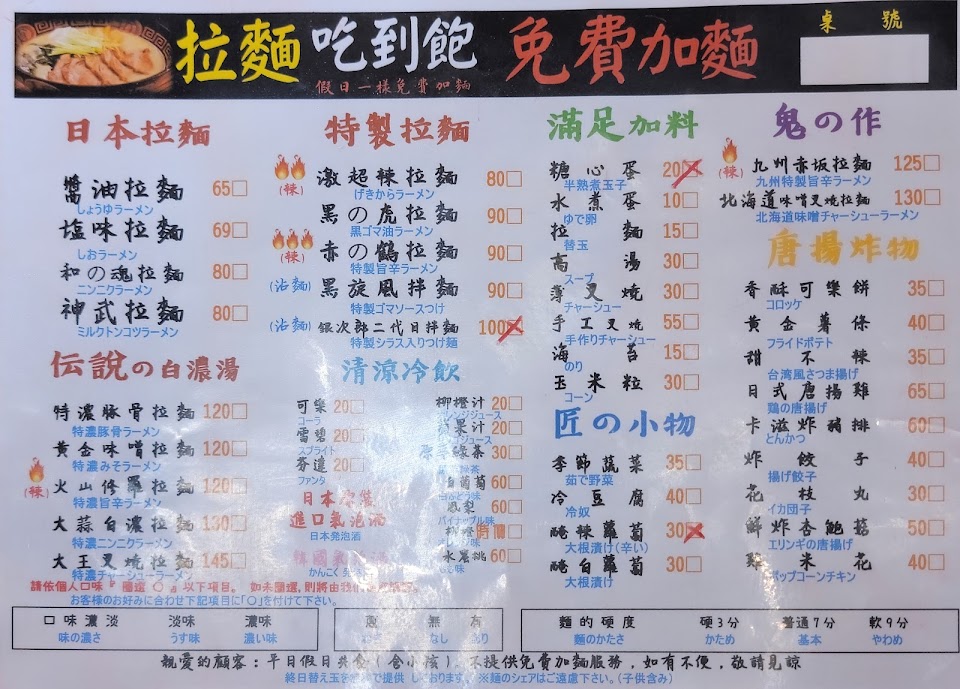 拉麵吃到飽 免費加麵
假日一樣免費加麵
桌 號
日本拉麵
醬油拉麵 65
しょうゆラーメン
塩味拉麵 69
しおラーメン
和の魂拉麵 80
ニンニクラーメン
神武拉麵 80
ミルクトンコツラーメン
伝説の白濃湯
特濃豚骨拉麵 120
特濃豚骨ラーメン
黄金味噌拉麵 120
特濃みそラーメン
(辣) 火山修羅拉麵 120
特濃旨辛ラーメン
大蒜白濃拉麵 130
特濃ニンニクラーメン
大王叉燒拉麵 145
特濃チャーシューラーメン
特製拉麵
(辣) 激超辣拉麵 80
げきからラーメン
黑の虎拉麵 90
黒ゴマ油ラーメン
(辣) 赤の鶴拉麵 90
特製旨辛ラーメン
(沾麵) 黑旋風拌麵 90
特製ゴマソースつけ
(沾麵) 銀次郎二代目拌麵 100
特製シラス入りつけ麺
清涼冷飲
可樂 20
コーラ
雪碧 20
スプライト
芬達 20
ファンタ
日本原裝
進口氣泡酒
日本発泡酒
柳橙汁 20
果汁 20
綠茶 30
60
60
パイナップル味
水蜜桃 60
滿足加料
糖心蛋 20
半熟煮玉子
水煮蛋 10
ゆで卵
拉麵 15
替玉
高湯 30
スープ
薄叉燒 30
チャーシュー
手工叉燒 55
手作りチャーシュー
海苔 15
のり
玉米粒 30
コーン
匠の小物
季節蔬菜 35
茹で野菜
冷豆腐 40
冷奴
醃辣蘿蔔 30
大根漬け(辛い)
醃白蘿蔔 30
大根漬け
鬼の作
(辣) 九州赤坂拉麵 125
九州特製旨辛ラーメン
北海道味噌叉燒拉麵 130
北海道味噌チャーシューラーメン
唐揚炸物
香酥可樂餅 35
コロッケ
黄金薯條 40
フライドポテト
甜不辣 35
台湾風さつま揚げ
日式唐揚雞 65
鶏の唐揚げ
卡滋炸豬排 60
とんかつ
炸餃子 40
揚げ餃子
花枝丸 30
イカ団子
鮮炸杏鮑菇 50
エリンギの唐揚げ
雞米花 40
ポップコーンチキン
請依個人口味『圈選 〇 』以下項目。 如未圈選,則將由我
お客様のお好みに合わせ下記項目に「〇」を付けて下さい。
口味濃淡 淡味 濃味
味の濃さ うす味 濃い味
無
なし あり
麵的硬度 硬3分 普通7分 軟9分
麺のかたさ かため 基本 やわめ
親愛的顧客：平日假日共食(含小孩) 不提供免費加麵服務，如有不便，敬請見諒
終日替え玉を で提供 しております ※麺のシェアはご遠慮下さい。(子供含み)